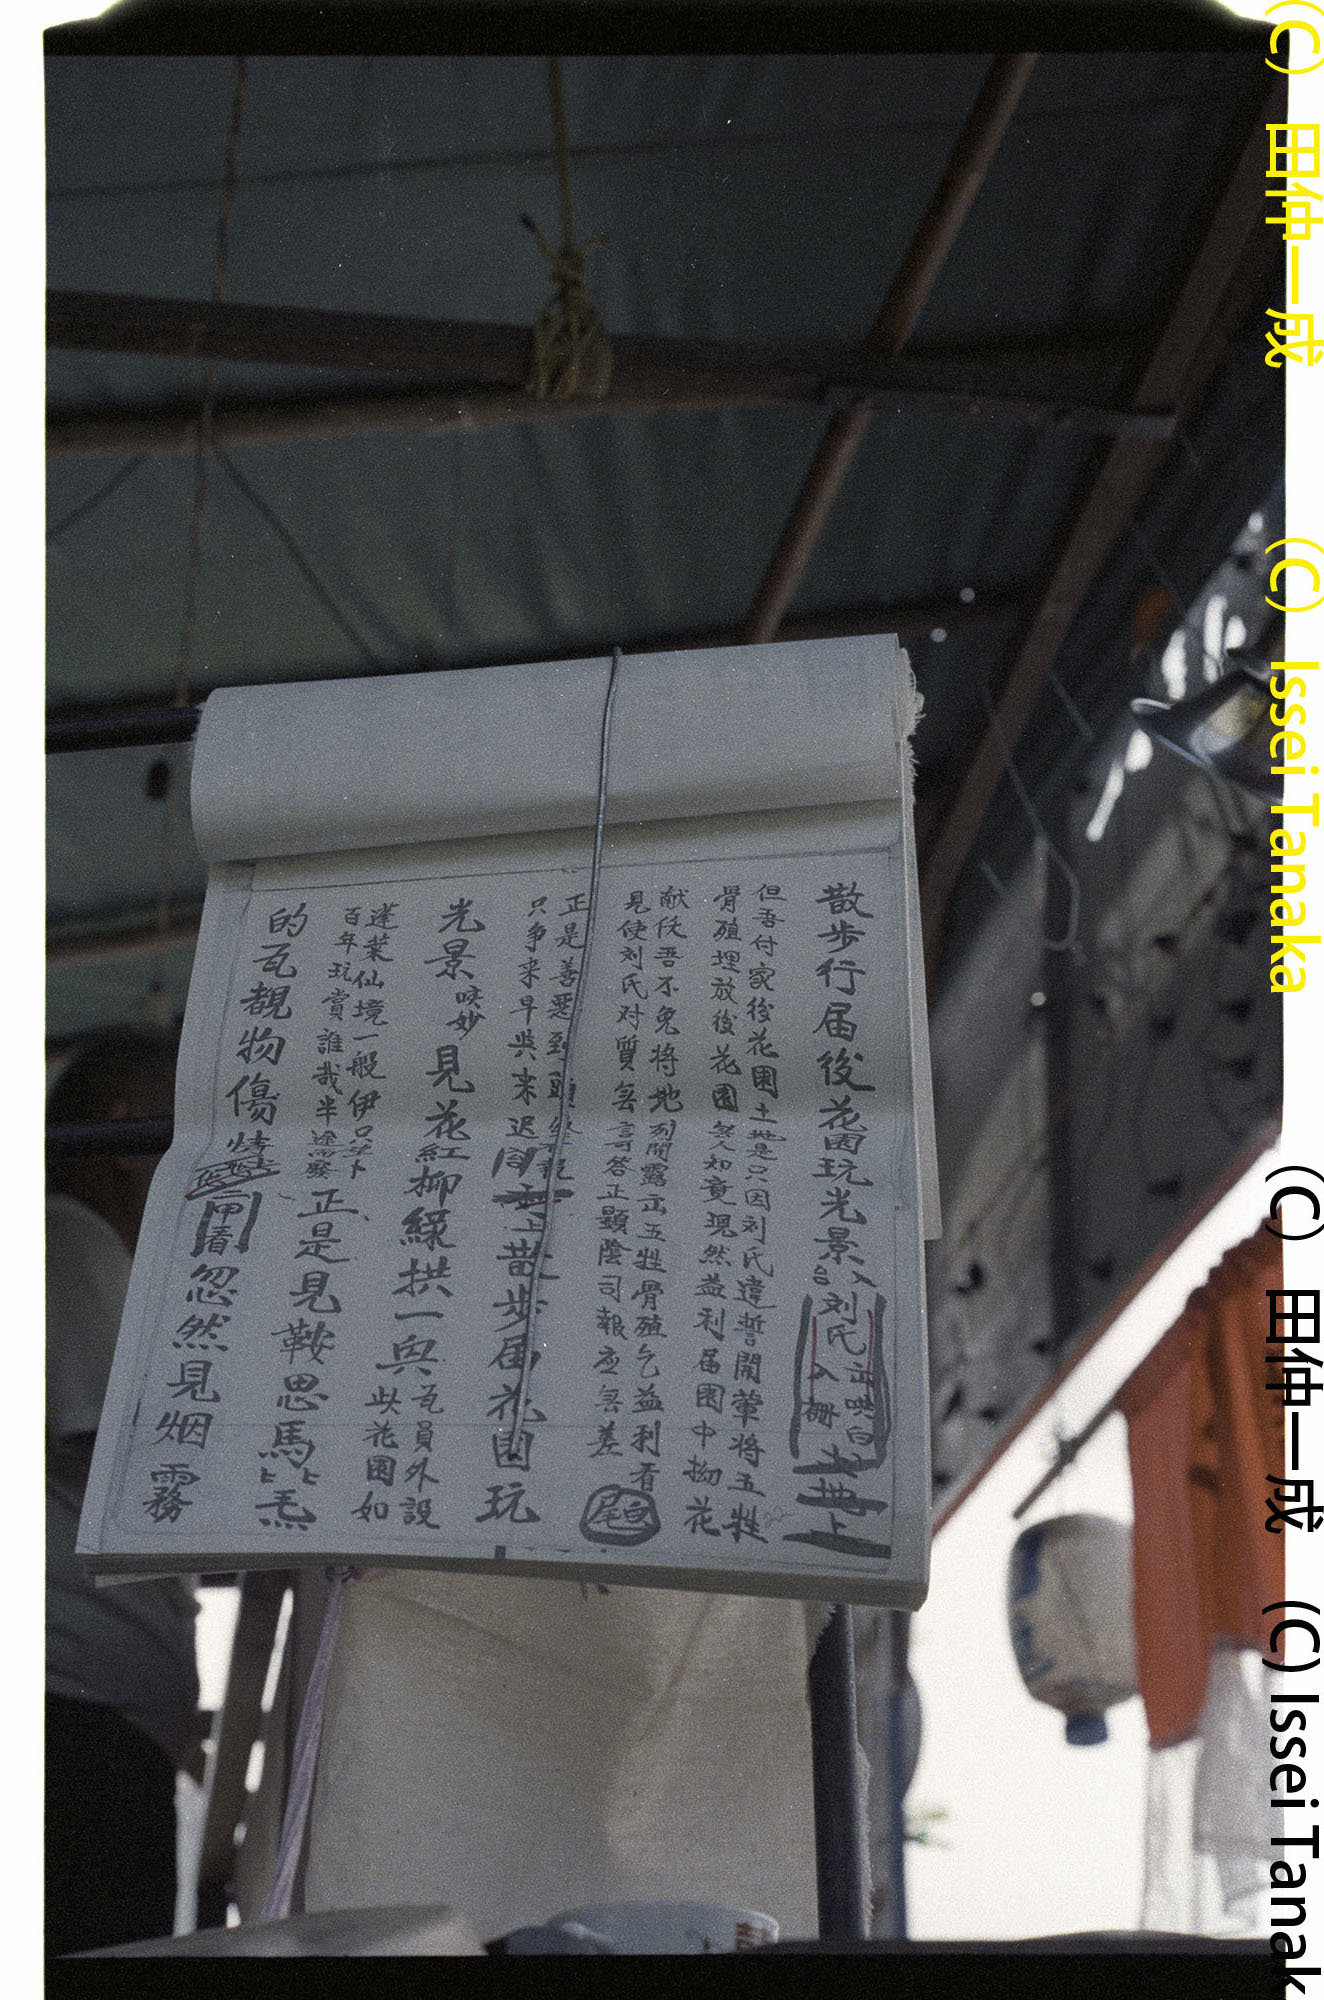 散步行届後花园玩光景入台刘氏
入棚
土地上
但吾付家後花園土地是只因刘氏違誓開葷将五牲
骨殖埋放後花園無人知竟現然益利届園中拗花
献伕吾不免将地列開露出五牲骨殖乞益利看
見使刘氏对質無言答正顯陰司報应無差
尾白
正是善惡到頭終有報
只争来早与来迟
上散步届花園玩
光景 唉妙 見花紅柳綠拱一與
员外設
此花園如
蓬莱仙境一般伊
百年玩賞誰哉半途廢
正是見鞍思馬
的瓦覩物傷情
忽然見烟霧
(C) 田仲一成 (C) Issei Tanaka
(C) 田仲一成 (C) Issei Tanak